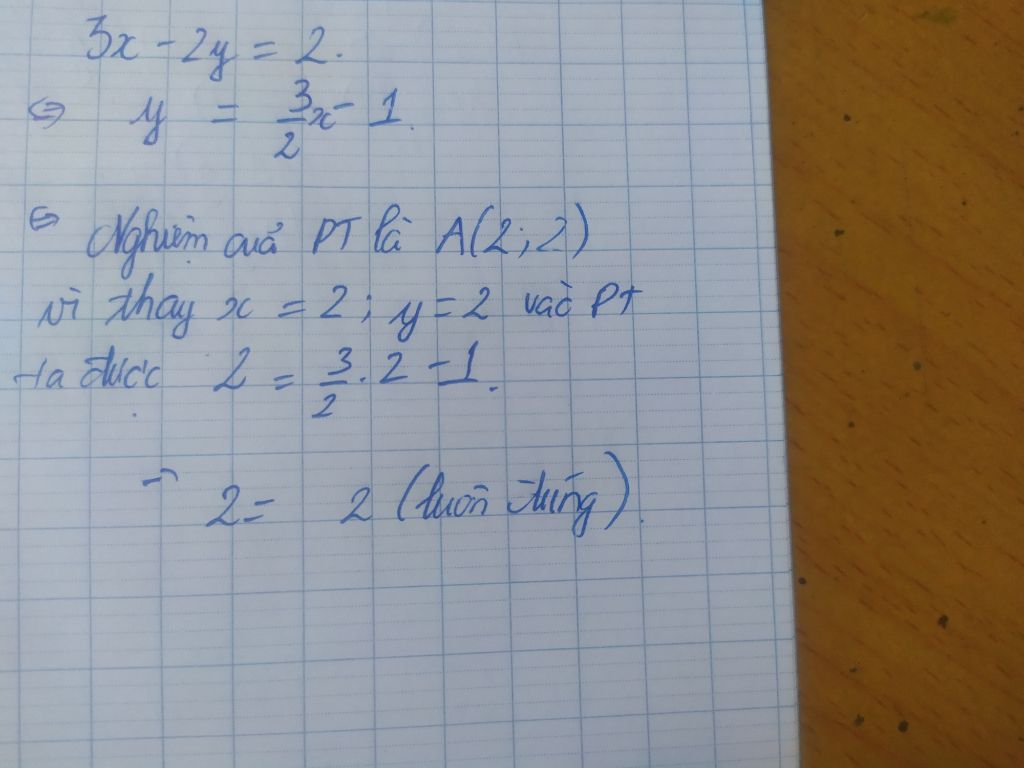 3x - 2y = 2.
⇔ y = 3/2 x - 1.
⇔ Nghiệm cuả PT là A(2; 2)
vì thay x = 2; y = 2 vào PT
ta được 2 = 3/2 . 2 - 1.
2 = 2 (luôn đúng).